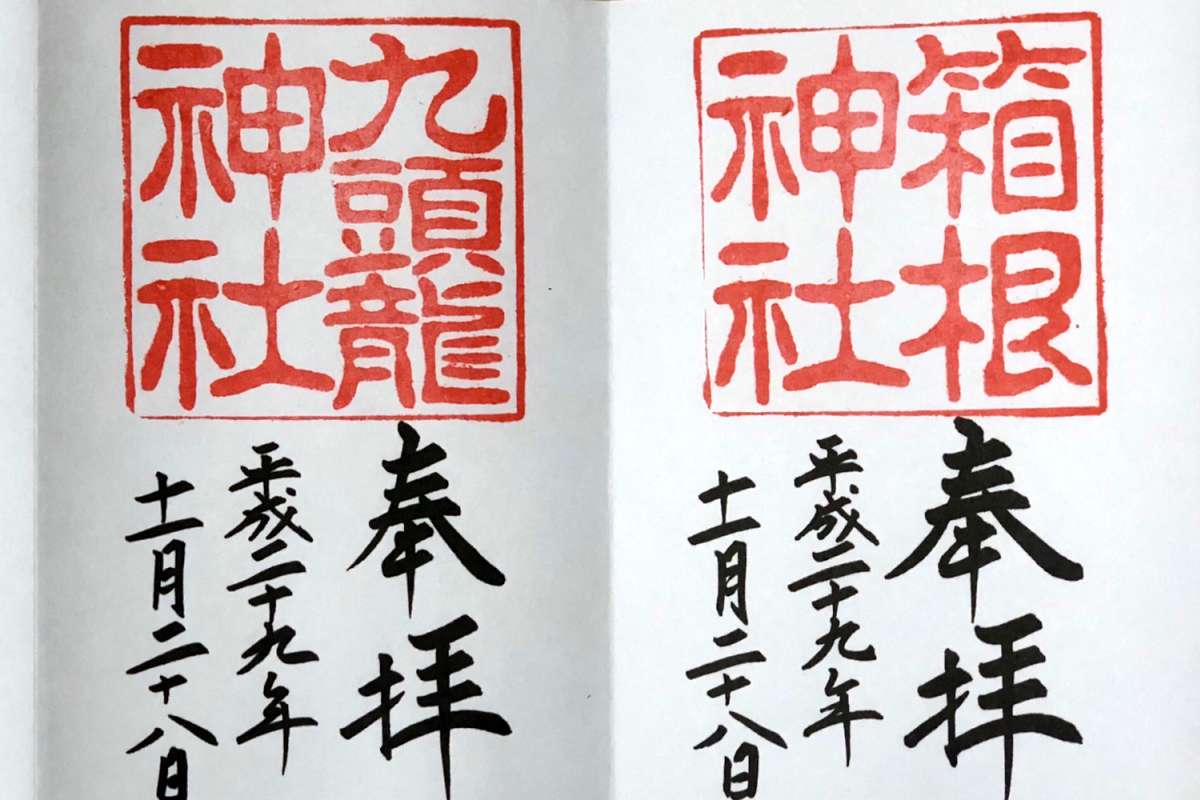 箱根
神社
奉拝
平成二十九年
十一月二十八日
九頭龍
神社
奉拝
平成二十九年
十一月二十八日